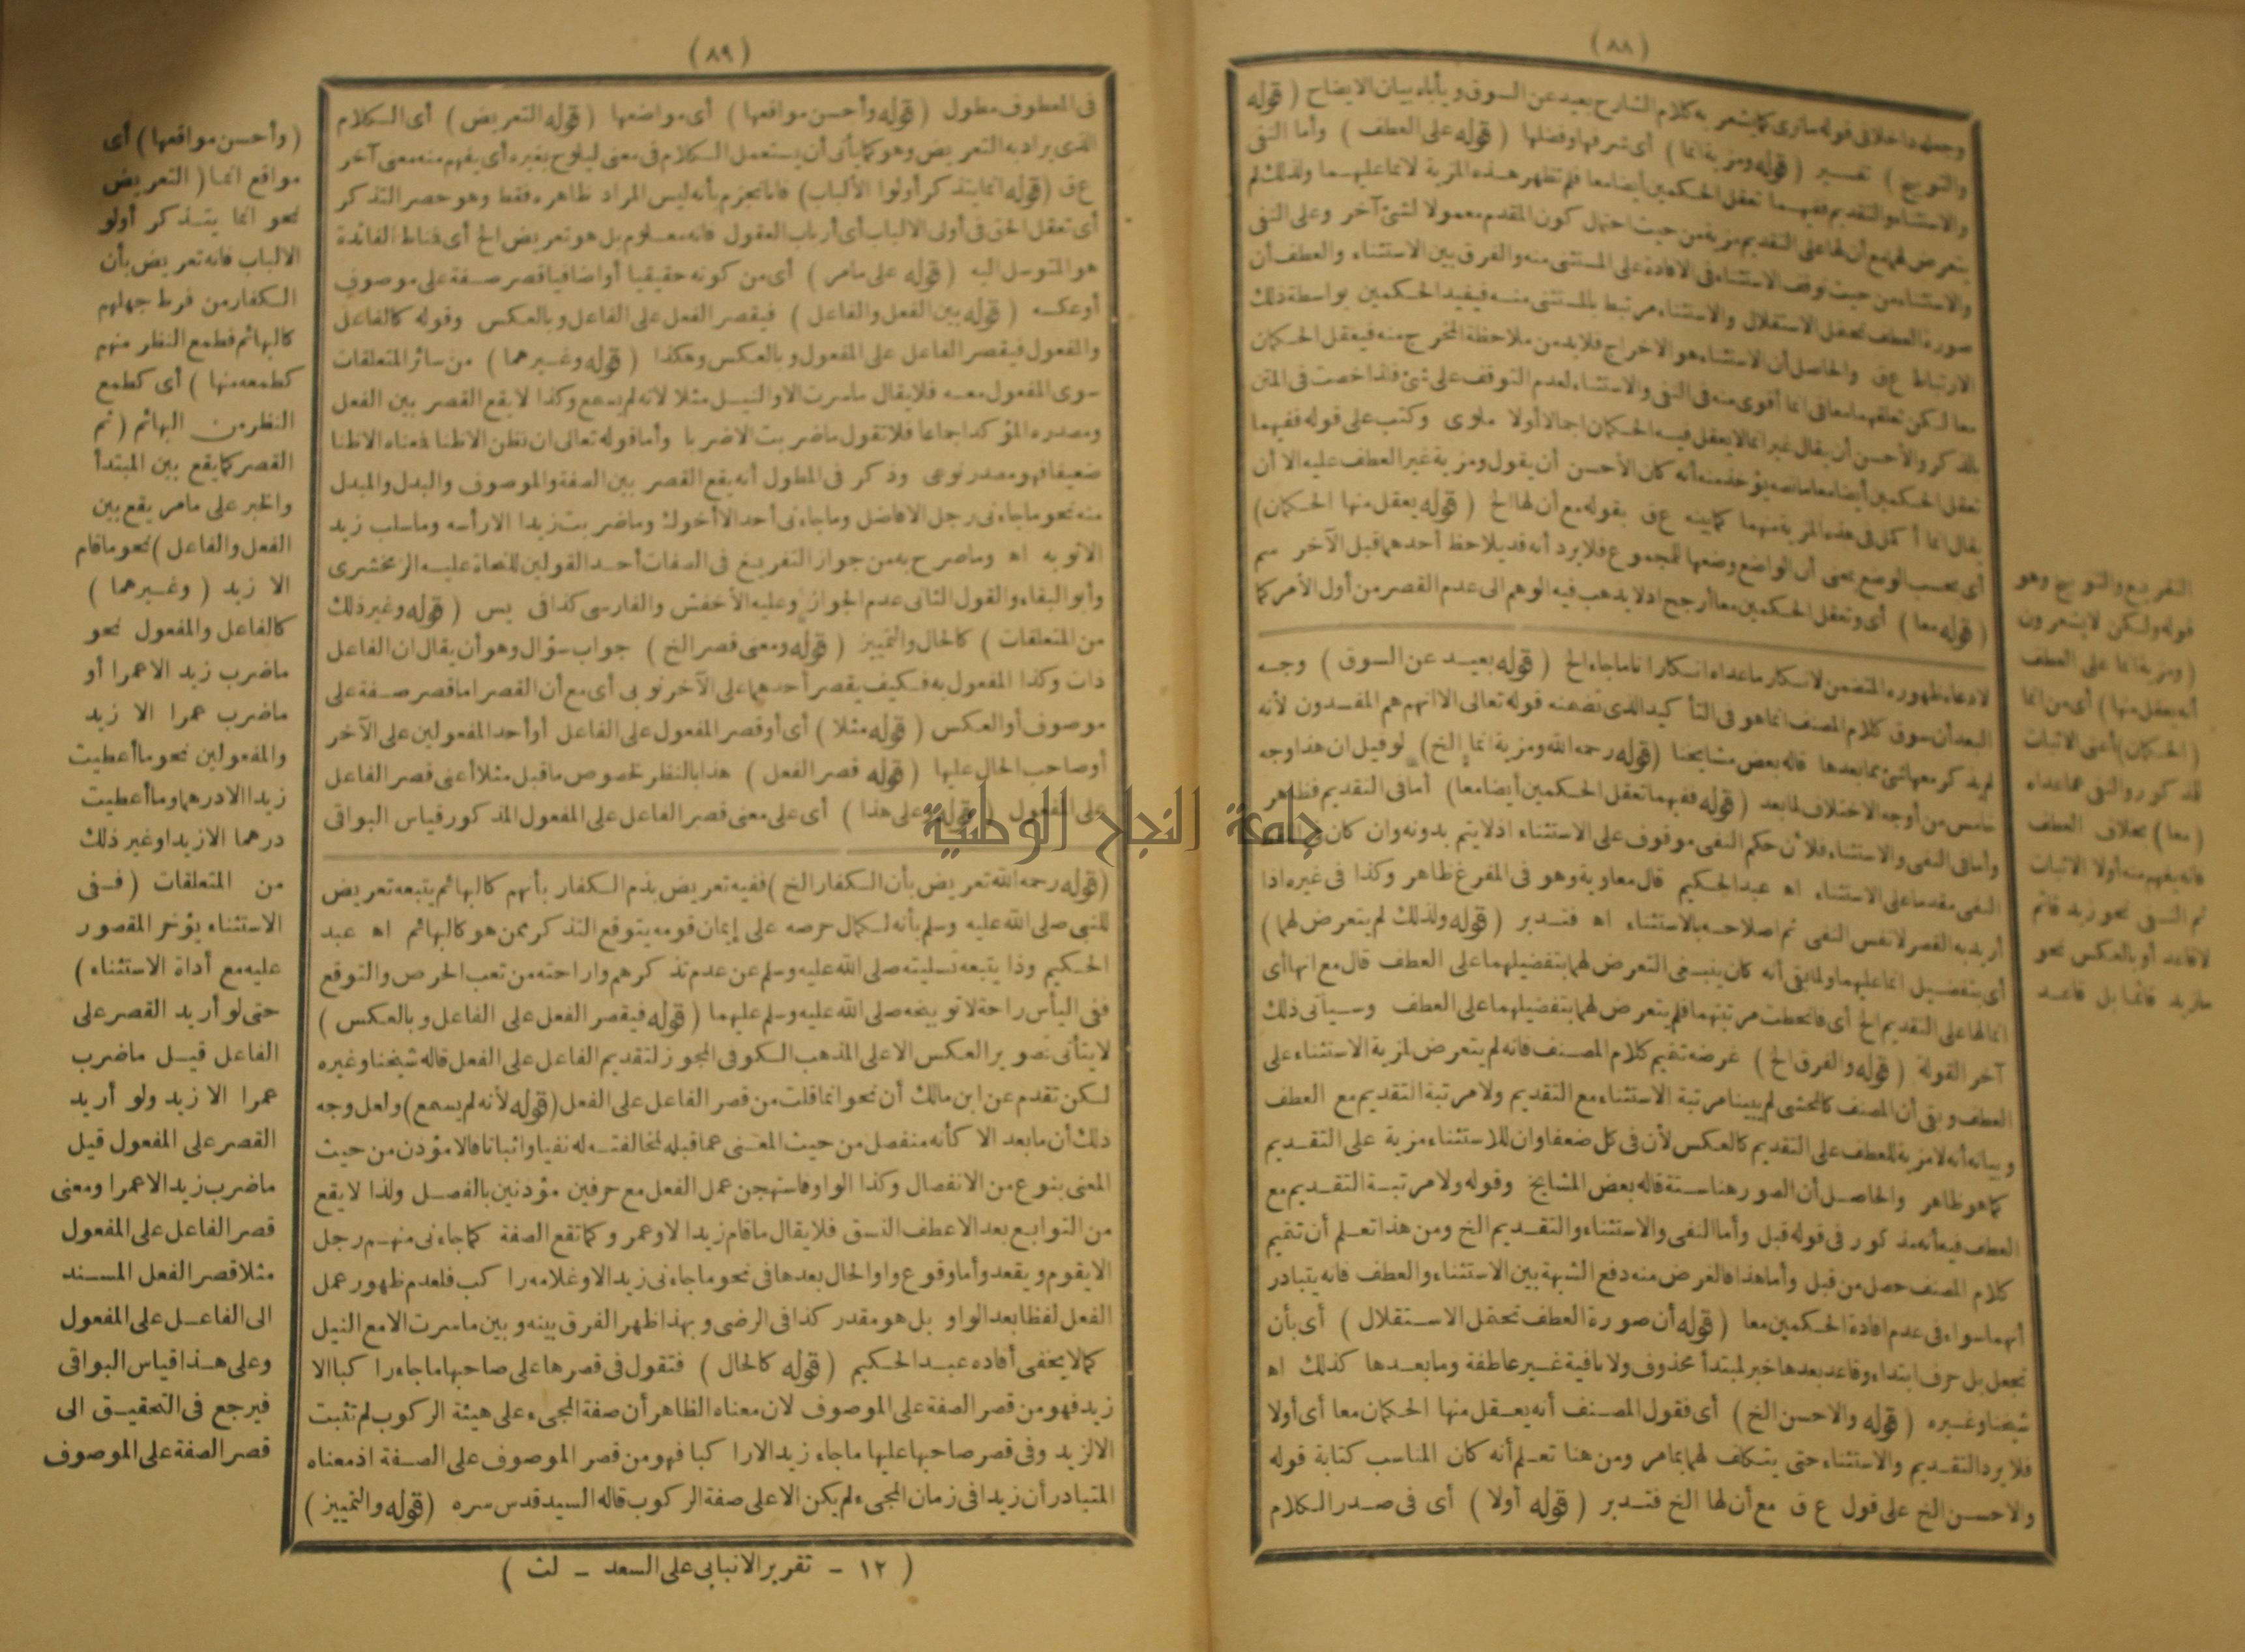 (٨٨)
وجعله داخلا في قوله ماترى كما يشعر به كلام الشارح بعيد عن السوق ويأباه بيان الايضاح (قوله
والتوبيخ) تفسير (قوله ومزية انما) أى شرفها وفضلها (قوله على العطف) وأما النفى
والاستثناء والتقديم ففيهما تعقل الحكمين أيضا معا فلم تظهر هذه المزية لانما عليهما ولذلك لم
يتعرض لهما مع أن لها على التقديم مزية من حيث احتمال كون المقدم معمولا لشئ آخر وعلى النفى
والاستثناء من حيث توقف الاستثناء فى الافادة على المستثنى منه والفرق بين الاستثناء والعطف أن
صورة العطف تحتمل الاستقلال والاستثناء مرتبط بالمستثنى منه فيفيد الحكمين بواسطة ذلك
الارتباط ع ق والحاصل أن الاستثناء هو الاخراج فلابد من ملاحظة المخرج منه فيعقل الحكمان
معا لكن تعلقهما معا فى انما أقوى منه فى النفى والاستثناء لعدم التوقف على شئ فلذا خصت فى المتن
بالذكر والأحسن أن يقال غير انما لا يعقل فيه الحكمان اجمالا أولا ملوى وكتب على قوله ففيهما
تعقل الحكمين أيضا معا مانصه يؤخذ منه أنه كان الأحسن أن يقول ومزية غير العطف عليه الا أن
يقال انما أكمل فى هذه المزية منهما كما بينه ع ق بقوله مع أن لها الخ (قوله يعقل منها الحكمان)
أى بحسب الوضع بمعنى أن الواضع وضعها للمجموع فلا يرد أنه قد يلاحظ أحدهما قبل الآخر سم
(قوله معا) أى وتعقل الحكمين معا أرجح اذ لا يذهب فيه الوهم الى عدم القصر من أول الأمر كما
لادعاء ظهوره المتضمن لانكار ماعداه انكارا تاما جاء الخ (قوله بعيد عن السوق) وجه
البعد أن سوق كلام المصنف انما هو فى التأكيد الذى تضمنه قوله تعالى الا انهم هم المفسدون لأنه
لم يذكر معها شئ مما بعدها قاله بعض مشايخنا (قوله رحمه الله ومزية انما الخ) لو قيل ان هذا وجه
خامس من أوجه الاختلاف لما بعد (قوله ففيهما تعقل الحكمين أيضا معا) أما فى التقديم فظاهر
وأما فى النفى والاستثناء فلأن حكم النفى موقوف على الاستثناء اذ لا يتم بدونه وان كان
النفى مقدما على الاستثناء اه عبد الحكيم قال معاوية وهو فى المفرغ ظاهر وكذا فى غيره اذا
أريد به القصر لا نفس النفى ثم اصلاحه بالاستثناء اه فتدبر (قوله ولذلك لم يتعرض لهما)
أى بتفضيل انما عليهما ولما بقى أنه كان ينبغى التعرض لهما بتفضيلهما على العطف قال مع انها أى
انما لها على التقديم الخ أى فانحطت مرتبتهما فلم يتعرض لهما بتفضيلهما على العطف وسيأتى ذلك
آخر القولة (قوله والفرق الخ) غرضه تتميم كلام المصنف فانه لم يتعرض لمزية الاستثناء على
العطف وبقى أن المصنف كالمحشى لم يبينا مرتبة الاستثناء مع التقديم ولا مرتبة التقديم مع العطف
وبيانه أنه لا مزية للعطف على التقديم كالعكس لأن فى كل ضعفا وان للاستثناء مزية على التقديم
كما هو ظاهر والحاصل أن الصور هنا ستة قاله بعض المشايخ وقوله ولا مرتبة التقديم مع
العطف فيه أنه مذكور فى قوله قبل وأما النفى والاستثناء والتقديم الخ ومن هذا تعلم أن تتميم
كلام المصنف حصل من قبل وأما هذا فالغرض منه دفع الشبهة بين الاستثناء والعطف فانه يتبادر
أنهما سواء فى عدم افادة الحكمين معا (قوله أن صورة العطف تحتمل الاستقلال) أى بأن
تجعل بل حرف ابتداء وقاعد بعدها خبر لمبتدأ محذوف ولا نافية غير عاطفة وما بعدها كذلك اه
شيخنا وغيره (قوله والاحسن الخ) أى فقول المصنف أنه يعقل منها الحكمان معا أى أولا
فلا يرد التقديم والاستثناء حتى يتكلف لهما بمامر ومن هنا تعلم أنه كان المناسب كتابة قوله
والاحسن الخ على قول ع ق مع أن لها الخ فتدبر (قوله أولا) أى فى صدر الكلام
التقريع والتوبيخ وهو
قوله ولكن لا يشعرون
(ومزية انما على العطف
أنه يعقل منها) أى من انما
(الحكمان) أعنى الاثبات
للمذكور والنفى عما عداه
(معا) بخلاف العطف
فانه يفهم منه أولا الاثبات
ثم النفى نحو زيد قائم
لا قاعد أو بالعكس نحو
مازيد قائما بل قاعد
(٨٩)
فى المعطوف مطول (قوله وأحسن مواقعها) أى مواضعها (قوله التعريض) أى الكلام
الذى يراد به التعريض وهو كما يأتى أن يستعمل الكلام فى معنى ليلوح بغيره أى يفهم منه معنى آخر
ع ق (قوله انما يتذكر أولوا الألباب) فانا نجزم بأنه ليس المراد ظاهره فقط وهو حصر التذكر
أى تعقل الحق فى أولى الالباب أى أرباب العقول فانه معلوم بل هو تعريض الخ أى فناط الفائدة
هو المتوسل اليه (قوله على مامر) أى من كونه حقيقيا أو اضافيا قصر صفة على موصوف
أو عكسه (قوله بين الفعل والفاعل) فيقصر الفعل على الفاعل وبالعكس وقوله كالفاعل
والمفعول فيقصر الفاعل على المفعول وبالعكس وهكذا (قوله وغيرهما) من سائر المتعلقات
سوى المفعول معه فلا يقال ماسرت الا والنيل مثلا لأنه لم يسمع وكذا لا يقع القصر بين الفعل
ومصدره المؤكد اجماعا فلا تقول ماضربت الا ضربا وأما قوله تعالى ان نظن الا ظنا فمعناه الا ظنا
ضعيفا فهو مصدر نوعى وذكر فى المطول أنه يقع القصر بين الصفة والموصوف والبدل والمبدل
منه نحو ماجاءنى رجل الا فاضل وماجاءنى أحد الا أخوك وماضربت زيدا الا رأسه وماسلب زيد
الا ثوبه اه وماصرح به من جواز التفريغ فى الصفات أحد القولين للنحاة عليه الزمخشرى
وأبو البقاء والقول الثانى عدم الجواز وعليه الأخفش والفارسى كذا فى يس (قوله وغير ذلك
من المتعلقات) كالحال والتمييز (قوله ومعنى قصر الخ) جواب سؤال وهو أن يقال ان الفاعل
ذات وكذا المفعول به فكيف يقصر أحدهما على الآخر نوبى أى مع أن القصر اما قصر صفة على
موصوف أو العكس (قوله مثلا) أى أو قصر المفعول على الفاعل أو أحد المفعولين على الآخر
أو صاحب الحال عليها (قوله قصر الفعل) هذا بالنظر لخصوص ماقبل مثلا أعنى قصر الفاعل
على المفعول (قوله وعلى هذا) أى على معنى قصر الفاعل على المفعول المذكور قياس البواقى
(قوله رحمه الله تعريض بأن الكفار الخ) ففيه تعريض بذم الكفار بأنهم كالبهائم يتبعه تعريض
للنبى صلى الله عليه وسلم بأنه لكمال حرصه على إيمان قومه يتوقع التذكر ممن هو كالبهائم اه عبد
الحكيم وذا يتبعه تسليته صلى الله عليه وسلم عن عدم تذكرهم واراحته من تعب الحرص والتوقع
ففى اليأس راحة لا توبيخه صلى الله عليه وسلم عليهما (قوله فيقصر الفعل على الفاعل وبالعكس)
لا يتأتى تصوير العكس الا على المذهب الكوفى المجوز لتقديم الفاعل على الفعل قاله شيخنا وغيره
لكن تقدم عن ابن مالك أن نحو انما قلت من قصر الفاعل على الفعل (قوله لأنه لم يسمع) ولعل وجه
ذلك أن مابعد الا كأنه منفصل من حيث المعنى عما قبله لمخالفته له نفيا واثباتا فالا مؤذن من حيث
المعنى بنوع من الانفصال وكذا الواو فاستهجن عمل الفعل مع حرفين مؤذنين بالفصل ولذا لا يقع
من التوابع بعد الا عطف النسق فلا يقال ماقام زيد الا وعمر وكما تقع الصفة كما جاءنى منهم رجل
الا يقوم ويقعد وأما وقوع واو الحال بعدها فى نحو ماجاءنى زيد الا وغلامه راكب فلعدم ظهور عمل
الفعل لفظا بعد الواو بل هو مقدر كذا فى الرضى وبهذا ظهر الفرق بينه وبين ماسرت الا مع النيل
كما لا يخفى أفاده عبد الحكيم (قوله كالحال) فتقول فى قصرها على صاحبها ماجاء راكبا الا
زيد فهو من قصر الصفة على الموصوف لان معناه الظاهر أن صفة المجىء على هيئة الركوب لم تثبت
الا لزيد وفى قصر صاحبها عليها ماجاء زيد الا راكبا فهو من قصر الموصوف على الصفة اذ معناه
المتبادر أن زيدا فى زمان المجىء لم يكن الا على صفة الركوب قاله السيد قدس سره (قوله والتمييز)
(وأحسن مواقعها) أى
مواقع انما (التعريض
نحو انما يتذكر أولو
الالباب فانه تعريض بأن
الكفار من فرط جهلهم
كالبهائم فطمع النظر منهم
كطمعه منها) أى كطمع
النظر من البهائم (ثم
القصر كما يقع بين المبتدأ
والخبر على مامر يقع بين
الفعل والفاعل) نحو ماقام
الا زيد (وغيرهما)
كالفاعل والمفعول نحو
ماضرب زيد الا عمرا أو
ماضرب عمرا الا زيد
والمفعولين نحو ما أعطيت
زيدا الا درهما وما أعطيت
درهما الا زيدا وغير ذلك
من المتعلقات (ففى
الاستثناء يؤخر المقصور
عليه مع أداة الاستثناء)
حتى لو أريد القصر على
الفاعل قيل ماضرب
عمرا الا زيد ولو أريد
القصر على المفعول قيل
ماضرب زيد الا عمرا ومعنى
قصر الفاعل على المفعول
مثلا قصر الفعل المسند
الى الفاعل على المفعول
وعلى هذا قياس البواقى
فيرجع فى التحقيق الى
قصر الصفة على الموصوف
(١٢ - تقرير الانبابى على السعد - لث)
جامعة النجاح الوطنية